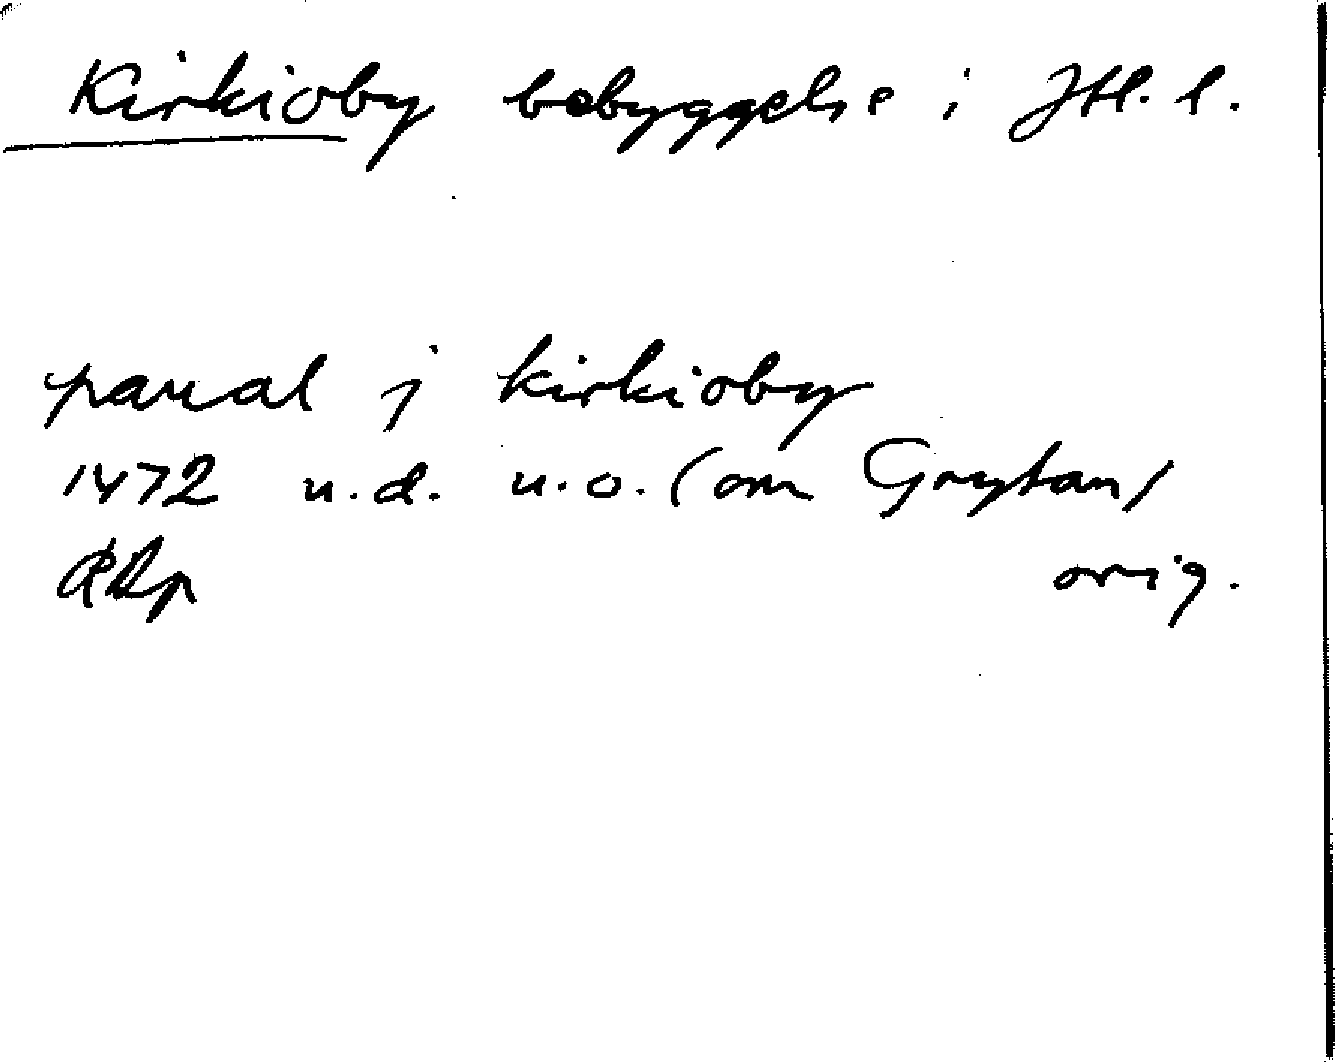 Kirkioby bebyggelse i Jtl. l.
paual j kirkioby
1472 u.d. u.o. (om Grytan)
RAp orig.